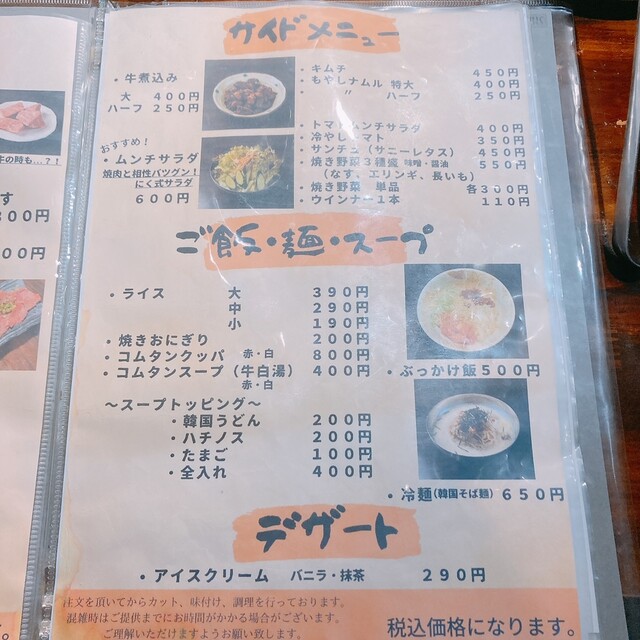 サイドメニュー
・牛煮込み
大 400円
ハーフ 250円
おすすめ！
・ムンチサラダ
焼肉と相性バツグン！
にく式サラダ
600円
・キムチ 450円
・もやしナムル 特大 400円
・ 〃 ハーフ 250円
・トマトムンチサラダ 400円
・冷やしトマト 350円
・サンチュ（サニーレタス） 450円
・焼き野菜３種盛 味噌・醤油 550円
（なす、エリンギ、長いも）
・焼き野菜 単品 各300円
・ウインナー１本 110円
ご飯・麺・スープ
・ライス 大 390円
中 290円
小 190円
・焼きおにぎり 200円
・コムタンクッパ 赤・白 800円
・コムタンスープ（牛白湯） 400円
赤・白
〜スープトッピング〜
・韓国うどん 200円
・ハチノス 200円
・たまご 100円
・全入れ 400円
・ぶっかけ飯500円
・冷麺（韓国そば麺）650円
デザート
・アイスクリーム バニラ・抹茶 290円
注文を頂いてからカット、味付け、調理を行っております。
混雑時はご提供までにお時間がかかる場合がございます。
ご理解いただけますようお願い致します。
税込価格になります。
牛の時も…？！
す
300円
00円